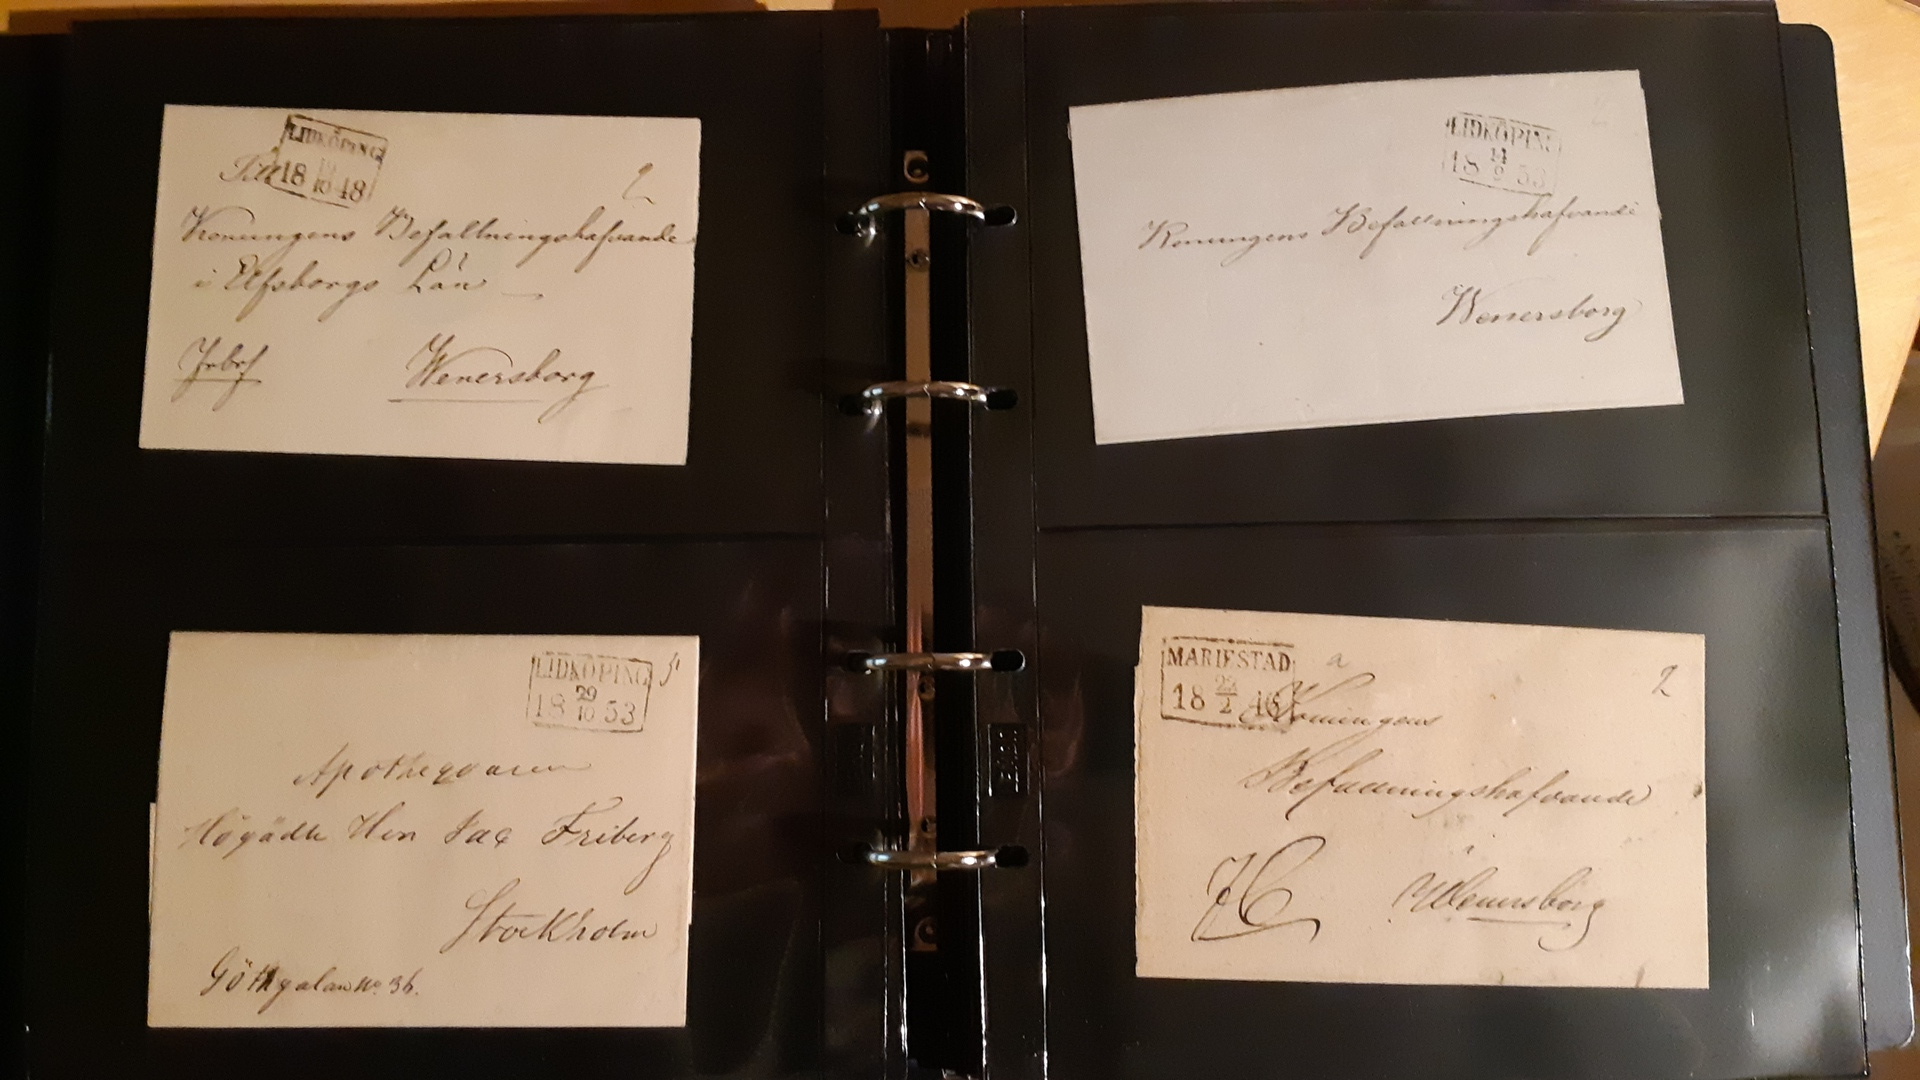 LIDKÖPING
18 12/10 48
Till
2
Konungens Befallningshafvande
i Elfsborgs Län
Wenersborg
LIDKÖPING
18 14/9 53
Konungens Befallningshafvande
Wenersborg
LIDKÖPING
18 29/10 53
Apothequaren
Högädle Herr Jac Friberg
Stockholm
Göthgatan No 36.
MARIESTAD
18 22/2 46
2
Konungens
Befallningshafvande
Wenersborg